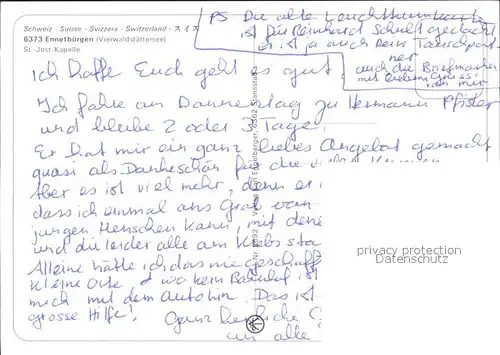 Schweiz · Suisse · Svizzera · Switzerland · スイス
6373 Ennetbürgen (Vierwaldstättersee)
St. Jost-Kapelle
PS Die alte Leuchtturmkarte
ist für Reinhard Schult gedacht
Er ist ja auch Dein Tauschpart-
ner
auch die Briefmarken
mit lieben Grüss
von mir
ich hoffe Euch geht es gut
Ich fahre am Donnerstag zu Hermann Pfister
und bleibe 2 oder 3 Tage.
Er hat mir ein ganz liebes Angebot gemacht
quasi als Dankeschön für die
Aber es ist viel mehr, denn er
dass ich einmal ans Grab von
jungen Menschen kann, mit dene
und die leider alle am Krebs sta
Alleine hätte ich das nie geschaff
kleine Orte + wo kein Bahnhof ist
mich mit dem Auto hin. Das ist
grosse Hilfe!
Ganz herzliche G
an alle
privacy protection
Datenschutz